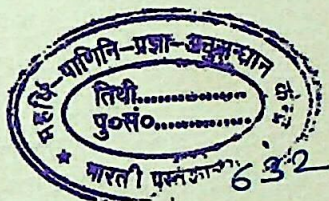 महर्षि-पाणिनि-प्रज्ञा-अनुसन्धान केन्द्र
तिथी..................
पु०सं०..................
★ भारती पुस्तकालय
632